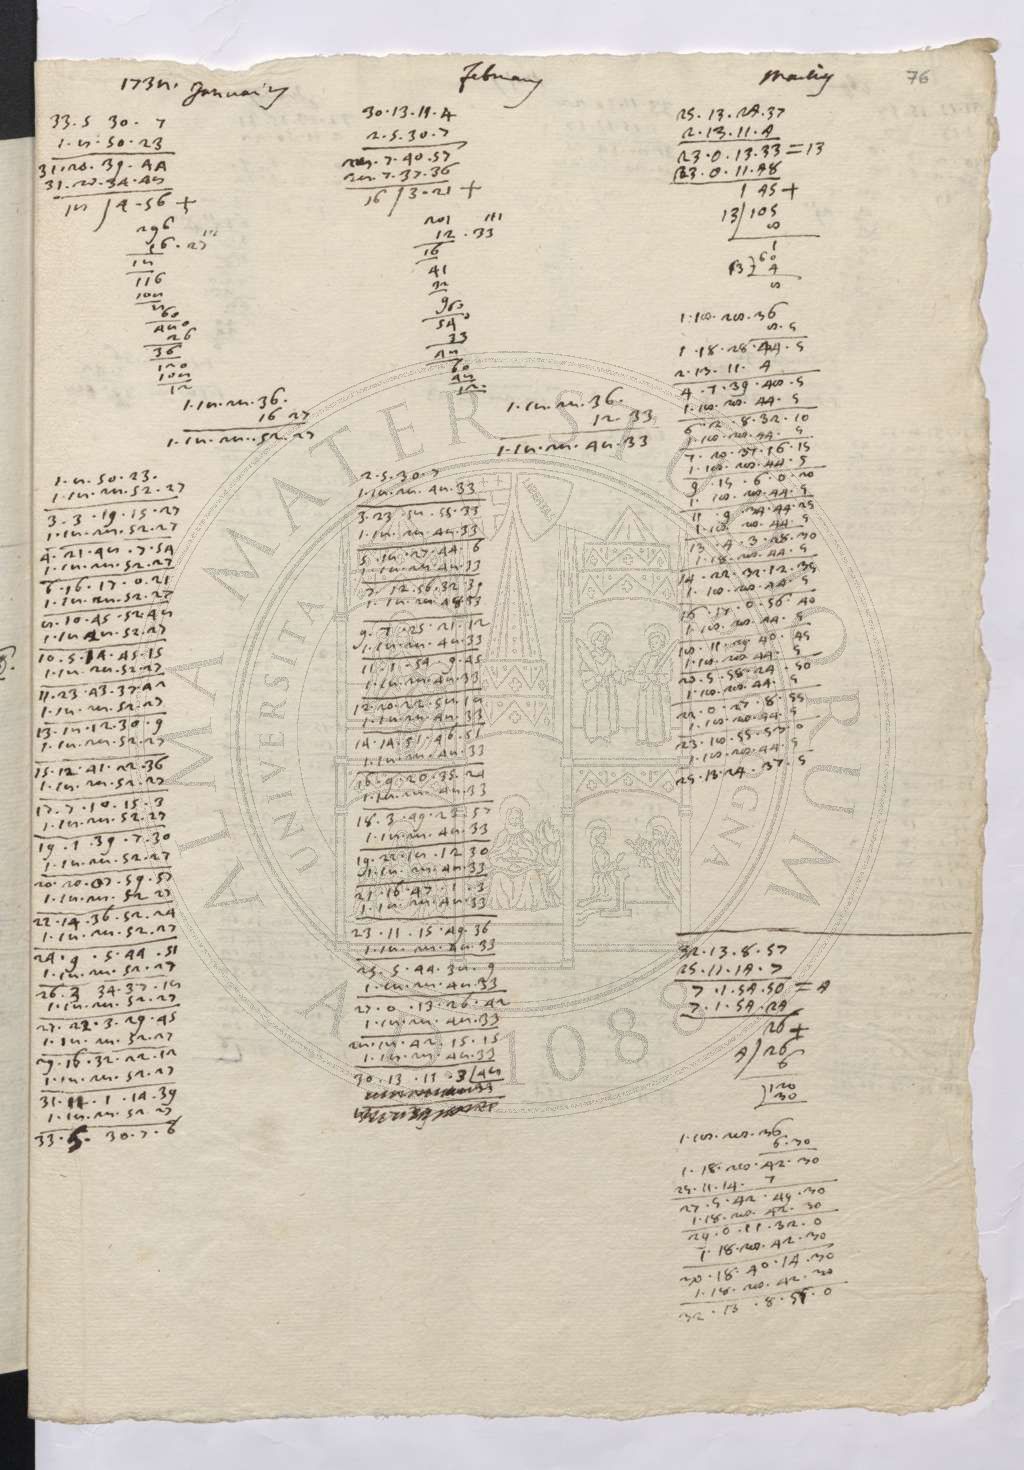 76
1738. January
33.5 30.7
1.8.50.23
31.20.39.44
31.20.34.48
18/4.56 +
296
16.27'''
18
116
108
8
60
480
26
36
120
108
12
1.18.28.36.
16 27
1.18.28.52.27
1.8.50.23.
1.18.28.52.27
3.3.19.15.27
1.18.28.52.27
4.21.48.7.54
1.18.28.52.27
6.16.17.0.21
1.18.28.52.27
8.10.45.52.48
1.18.28.52.27
10.5.14.45.15
1.18.28.52.27
11.23.43.37.42
1.18.28.52.27
13.18.12.30.9
1.18.28.52.27
15.12.41.22.36
1.18.28.52.27
17.7.10.15.3
1.18.28.52.27
19.1.39.7.30
1.18.28.52.27
20.20.07.59.57
1.18.28.52.27
22.14.36.52.24
1.18.28.52.27
24.9.5.44.51
1.18.28.52.27
26.3 34.37.18
1.18.28.52.27
27.22.3.29.45
1.18.28.52.27
29.16.32.22.12
1.18.28.52.27
31.11.1.14.39
1.18.28.52.27
33.5.30.7.6
February
30.13.11.4
2.5.30.7
28.7.40.57
28.7.37.36
16/3.21 +
201
12.33'''
16
41
32
9
60
540
33
48
60
48
12.
1.18.28.36.
12 33
1.18.28.48.33
2.5.30.7
1.18.28.48.33
3.23.58.55.33
1.18.28.48.33
5.18.27.44.6
1.18.28.48.33
7.12.56.32.39
1.18.28.48.33
9.7.25.21.12
1.18.28.48.33
11.1.54.9.45
1.18.28.48.33
12.20.22.58.18
1.18.28.48.33
14.14.51.46.51
1.18.28.48.33
16.9.20.35.24
1.18.28.48.33
18.3.49.23.57
1.18.28.48.33
19.22.18.12 30
1.18.28.48.33
21.16.47.1.3
1.18.28.48.33
23.11.15.49.36
1.18.28.48.33
25.5.44.38.9
1.18.28.48.33
27.0.13.26.42
1.18.28.48.33
28.18.42.15.15
1.18.28.48.33
30.13.11.3/48
25.13.24.37
2.13.11.4
23.0.13.33=13
23.0.11.48
1 45+
13/105
8
1
60
13) 4
8
1.18.28.36
8.5
1.18.28.44.5
2.13.11.4
4.7.39.48.5
1.18.28.44.5
6.2.8.32.10
1.18.28.44.5
7.20.37.16.15
1.18.28.44.5
9.15.6.0.20
1.18.28.44.5
11.9.34.44.25
1.18.28.44.5
13.4.3.28.30
1.18.28.44.5
14.22.32.12.35
1.18.28.44.5
16.17.0.56.40
1.18.28.44.5
18.11.29.40.45
1.18.28.44.5
20.5.58.24.50
1.18.28.44.5
22.0.27.8.55
1.18.28.44.5
23.18.55.53.0
1.18.28.44.5
25.13.24.37.5
32.13.8.57
25.11.14.7
7.1.54.50=4
7.1.54.24
26+
4)26
6
)120
30
1.18.28.36
6.30
1.18.28.42.30
25.11.14.7
27.5.42.49.30
1.18.28.42.30
29.0.11.32.0
1.18.28.42.30
30.18.40.14.30
1.18.28.42.30
32.13.8.57.0
ALMA MATER STUDIORUM
UNIVERSITA
A.D. 1088